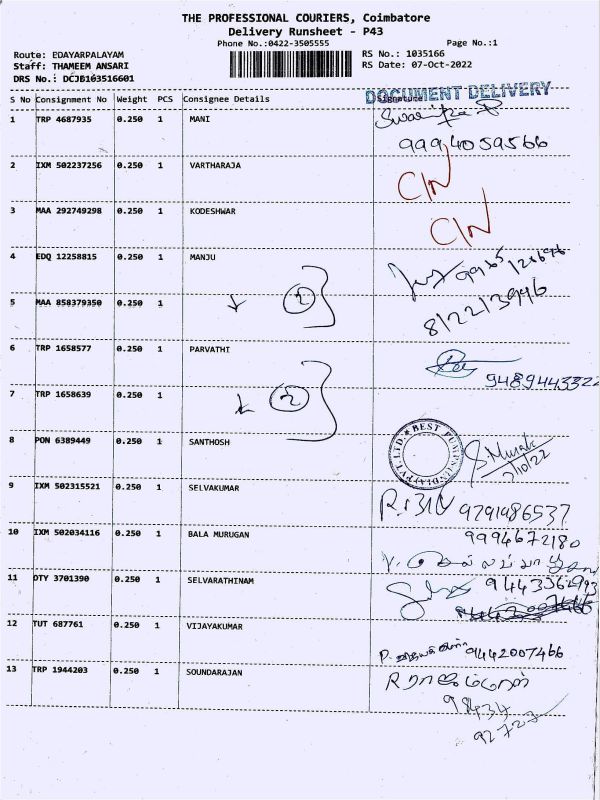 THE PROFESSIONAL COURIERS, Coimbatore
Delivery Runsheet - P43
Phone No.:0422-3505555
Page No.:1
Route: EDAYARPALAYAM
RS No.: 1035166
Staff: THAMEEM ANSARI
RS Date: 07-Oct-2022
DRS No.: DCJB103516601
DOCUMENT DELIVERY
S No Consignment No Weight PCS Consignee Details Signature
1 TRP 4687935 0.250 1 MANI
9994059566
2 IXM 502237256 0.250 1 VARTHARAJA C/N
3 MAA 292749298 0.250 1 KODESHWAR C/N
4 EDQ 12258815 0.250 1 MANJU
5 MAA 858379350 0.250 1 2 8122213946
6 TRP 1658577 0.250 1 PARVATHI
9489443322
7 TRP 1658639 0.250 1 2
8 PON 6389449 0.250 1 SANTHOSH
BEST PUMPS (INDIA) PVT. LTD.
7/10/22
9 IXM 502315521 0.250 1 SELVAKUMAR 9791986537
10 IXM 502034116 0.250 1 BALA MURUGAN 9994672180
11 DTY 3701390 0.250 1 SELVARATHINAM
12 TUT 687761 0.250 1 VIJAYAKUMAR
9442007466
13 TRP 1944203 0.250 1 SOUNDARAJAN
98434
92723